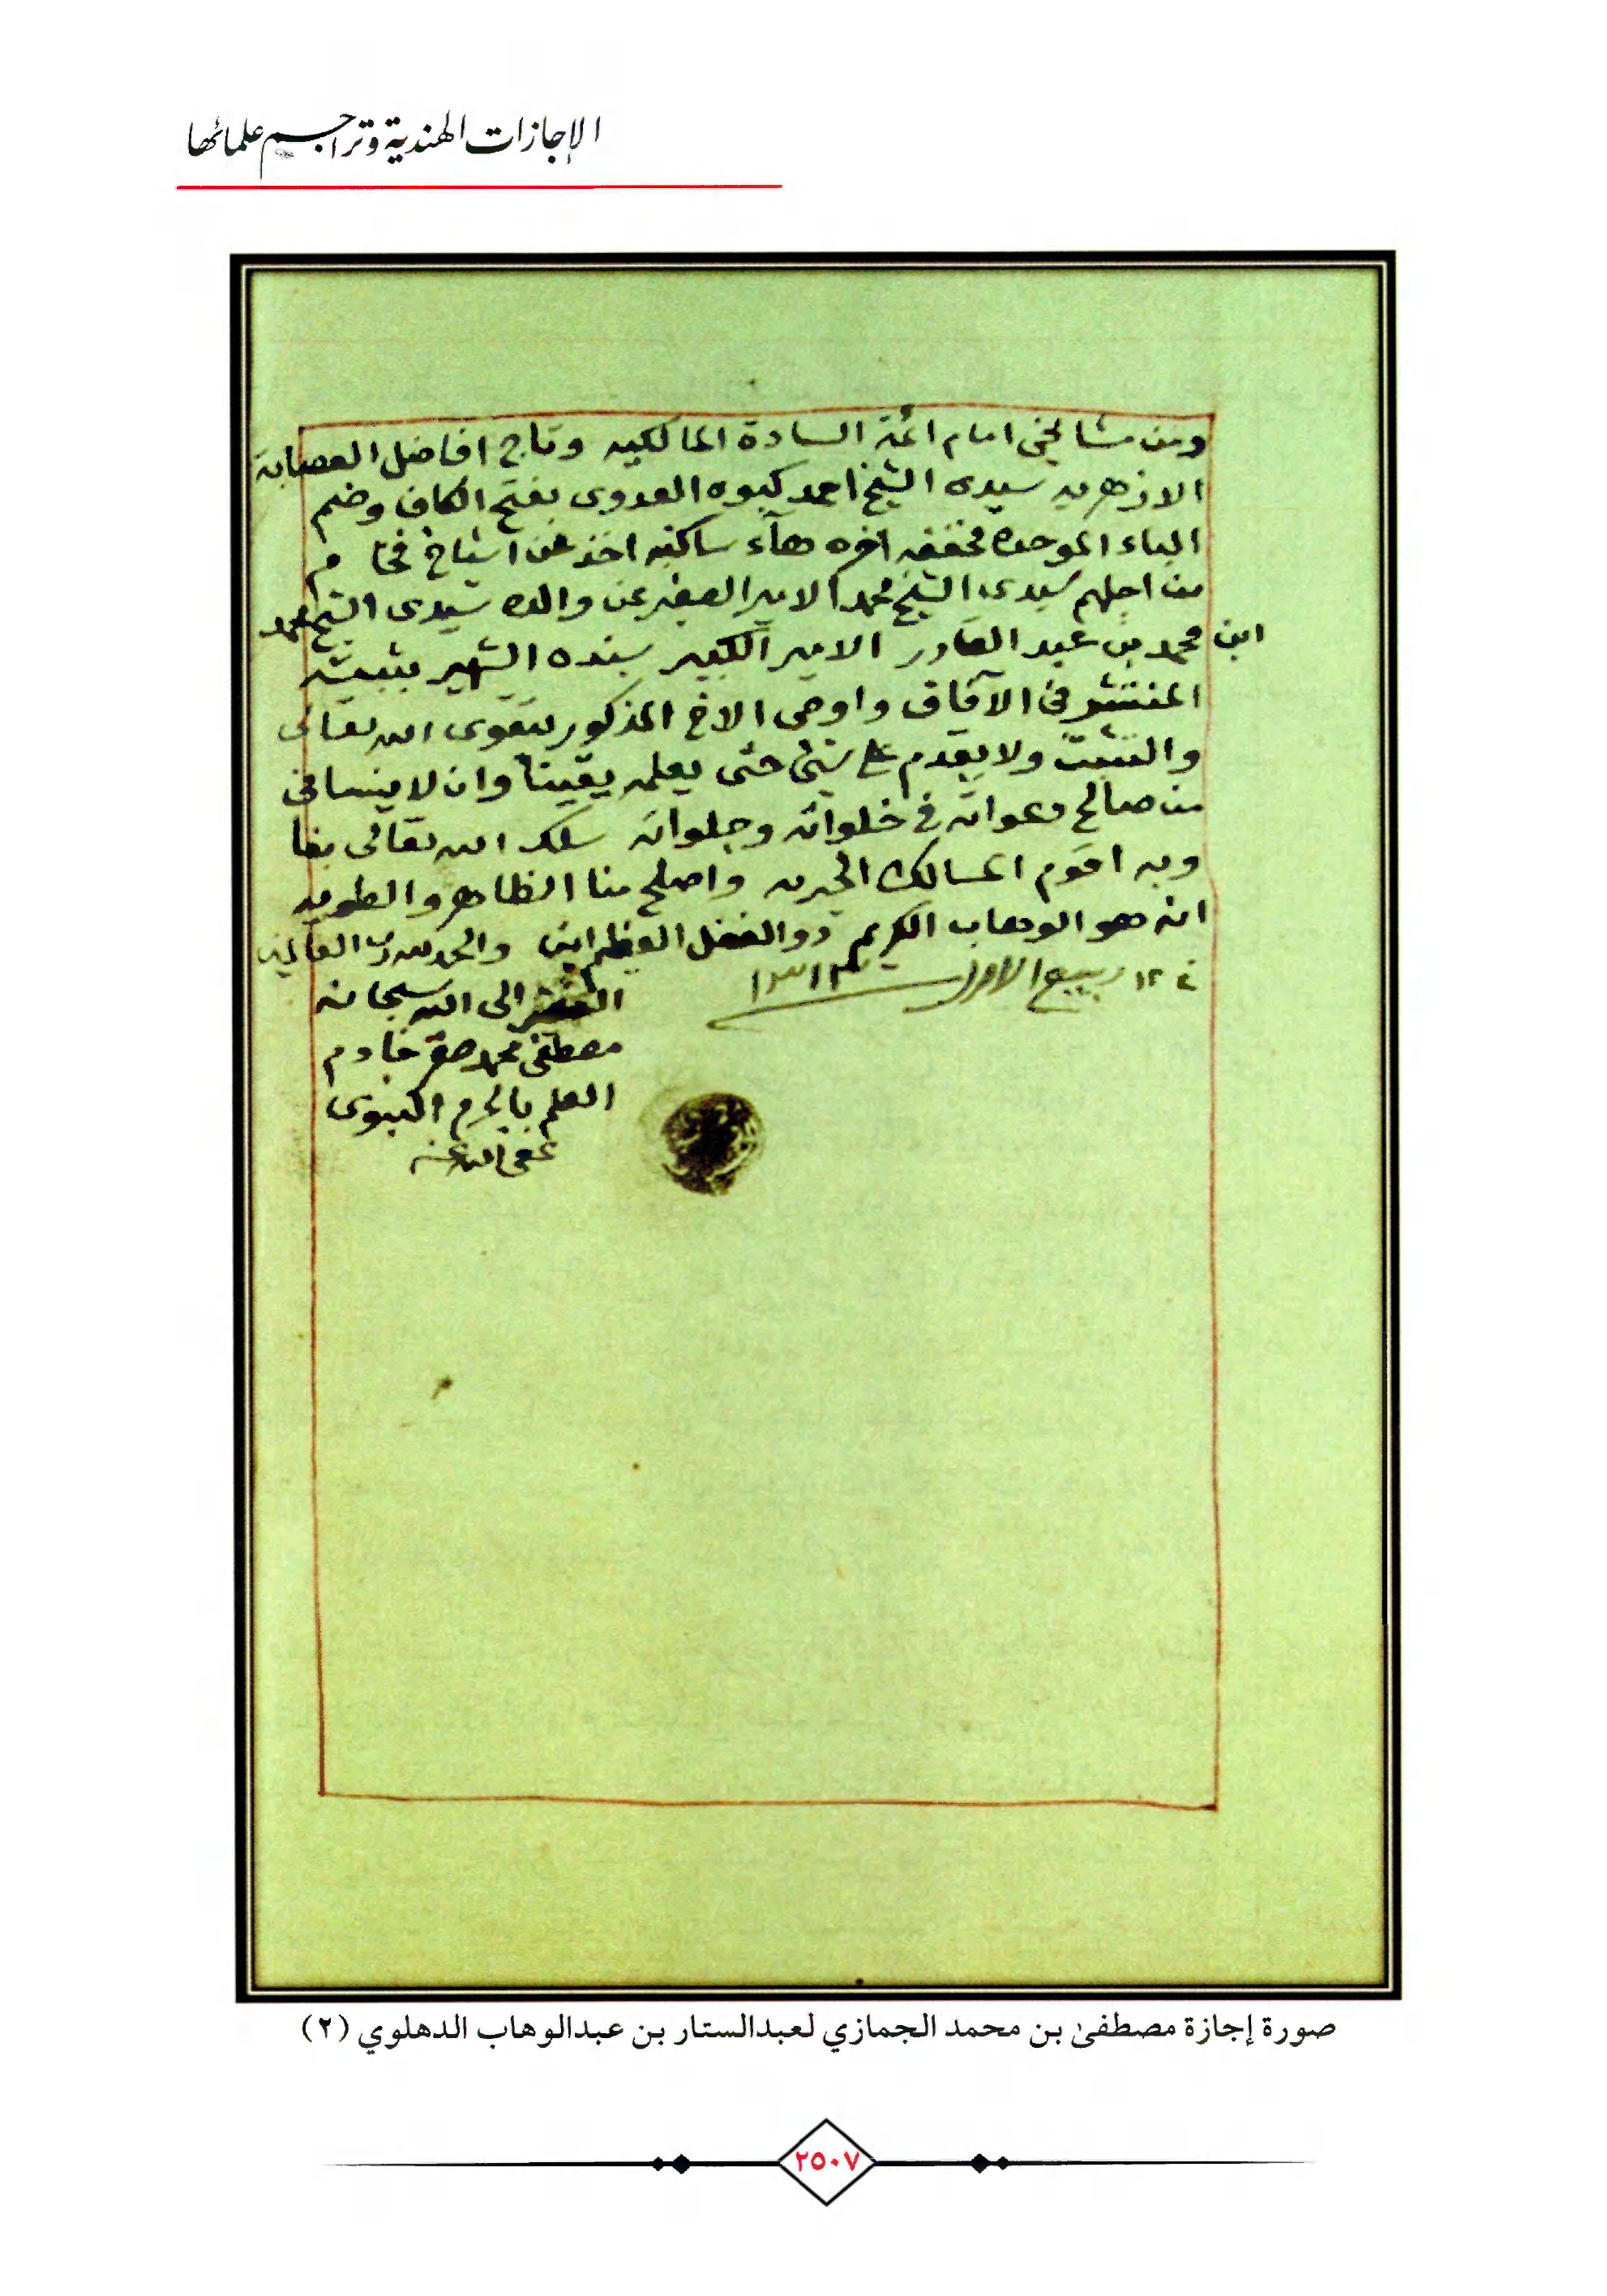 الإجازات الهندية وتراجم علمائها
ومن مشايخي امام ائمة السادة المالكيه وتاج افاضل العصابة
الازهريه سيدى الشيخ احمد كبوه العدوى بفتح الكاف وضم
الباء الموحده مخففه اخره هآء ساكنه اخذ عن اشياخ فخام
من اجلهم سيدى الشيخ محمد الامير الصغير عن والده سيدى الشيخ محمد
ابن محمد بن عبد القادر الامير الكبير بسنده الشهير بثبته
المنتشر فى الآفاق واوصى الاخ المذكور بتقوى الله تعالى
والتثبت ولا يقدم على شئ حتى يعلمه يقينا وان لا ينسانى
من صالح دعواته فى خلواته وجلواته سلك الله تعالى بنا
وبه اقوم المسالك الخيريه واصلح منا الظاهر والطويه
انه هو الوهاب الكريم ذو الفضل العظيم امين والحمد لله رب العالمين
ربيع الاول سنة ١٣١٣
الفقير الى الله سبحانه
مصطفى محمد صقر خادم
العلم بالحرم النبوى
عفى الله عنه
صورة إجازة مصطفىٰ بن محمد الجمازي لعبدالستار بن عبدالوهاب الدهلوي (٢)
٢٥٠٧